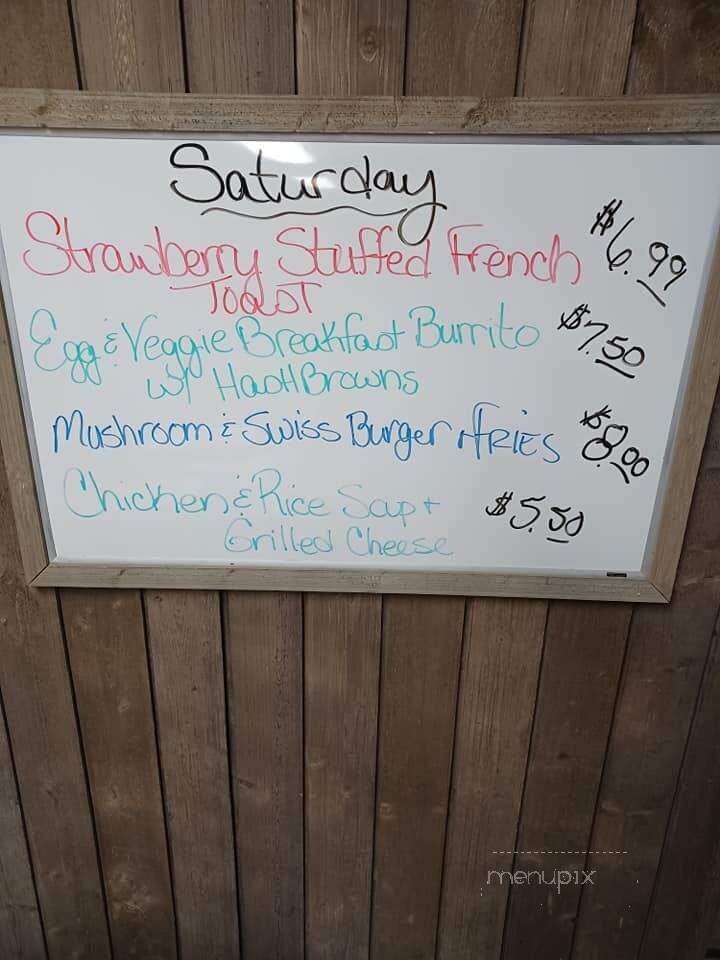 Saturday
Strawberry Stuffed French $6.99
Toast
Egg & Veggie Breakfast Burrito $7.50
w/ HasHBrowns
Mushroom & Swiss Burger + FRIES $8.00
Chicken & Rice Soup + $5.50
Grilled Cheese
menupix